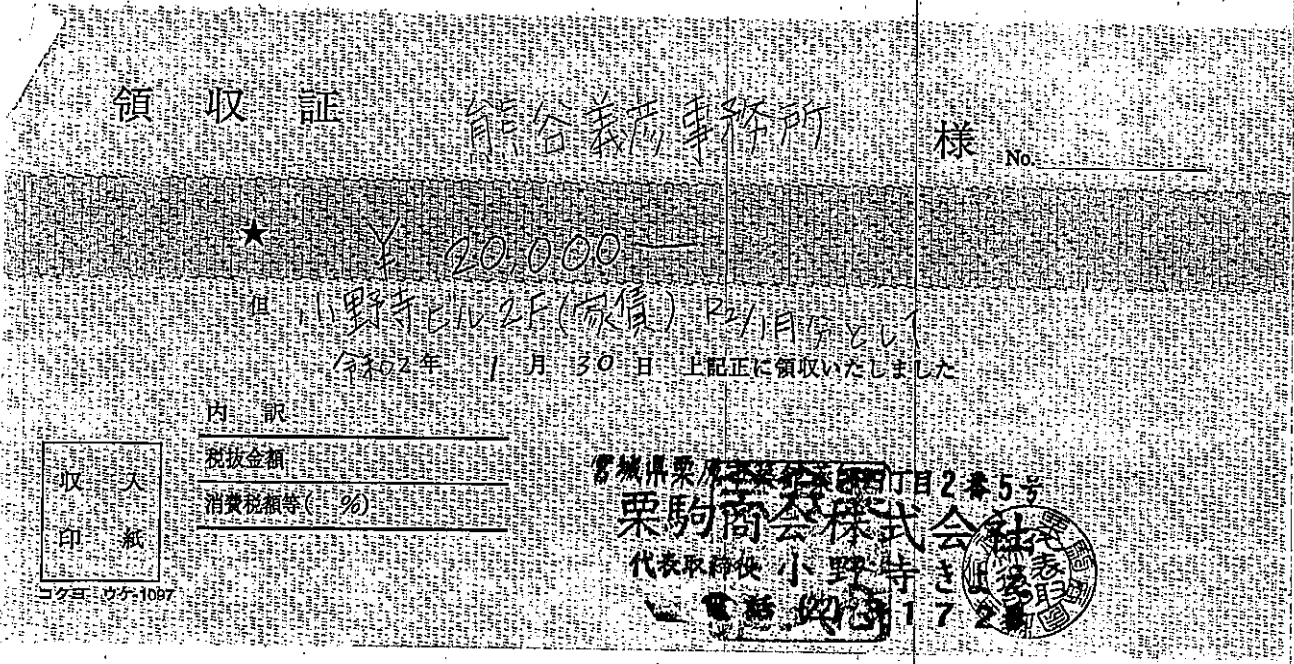 領収証 熊谷義彦事務所 様 No.
★ ¥20,000―
但 小野寺ビル2F(家賃) R2/1月分として
令和02年 1月30日 上記正に領収いたしました
内訳
税抜金額
消費税額等( %)
収入
印紙
コクヨ ウケ-1097
宮城県栗原 四丁目2番5号
栗駒商会株式会社
代表取締役 小野寺き
電話 172